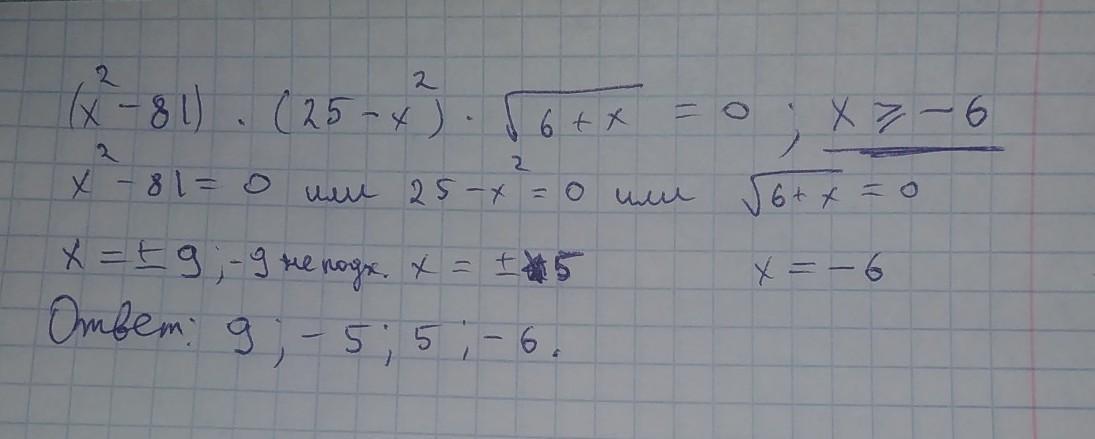 (x² - 81) · (25 - x²) · √(6 + x) = 0 ; x ≥ -6
x² - 81 = 0 или 25 - x² = 0 или √(6 + x) = 0
x = ± 9 ; -9 не подх. x = ± 5 x = -6
Ответ: 9 ; -5 ; 5 ; -6.